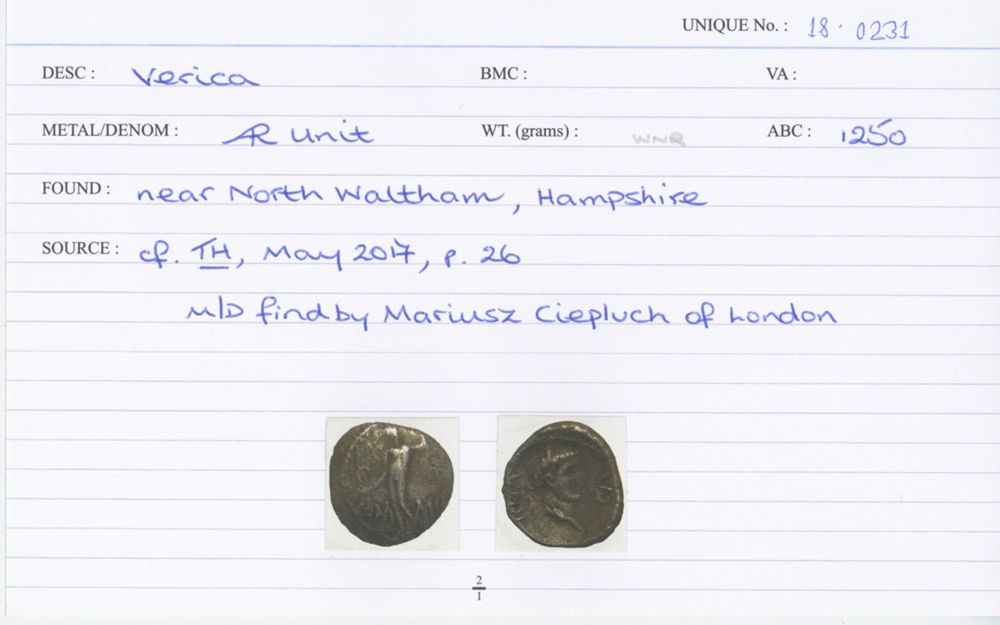 UNIQUE No. : 18 · 0231
DESC : Verica BMC : VA :
METAL/DENOM : AR Unit WT. (grams) : WNR ABC : 1250
FOUND : near North Waltham, Hampshire
SOURCE : cf. TH, May 2017, p. 26
M/D find by Mariusz Ciepluch of London
2
1